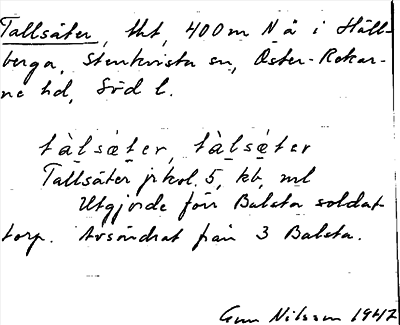 Tallsäter, tht, 400 m N å i Häll-
berga, Stenkvista sn, Öster-Rekar-
ne hd, Söd l.
tàlsäter, tàlsäter
Tallsäter jrkol. 5, kb, ml
Utgjorde förr Balsta soldat-
torp. Avsöndrat från 3 Balsta.
Gun Nilsson 1947